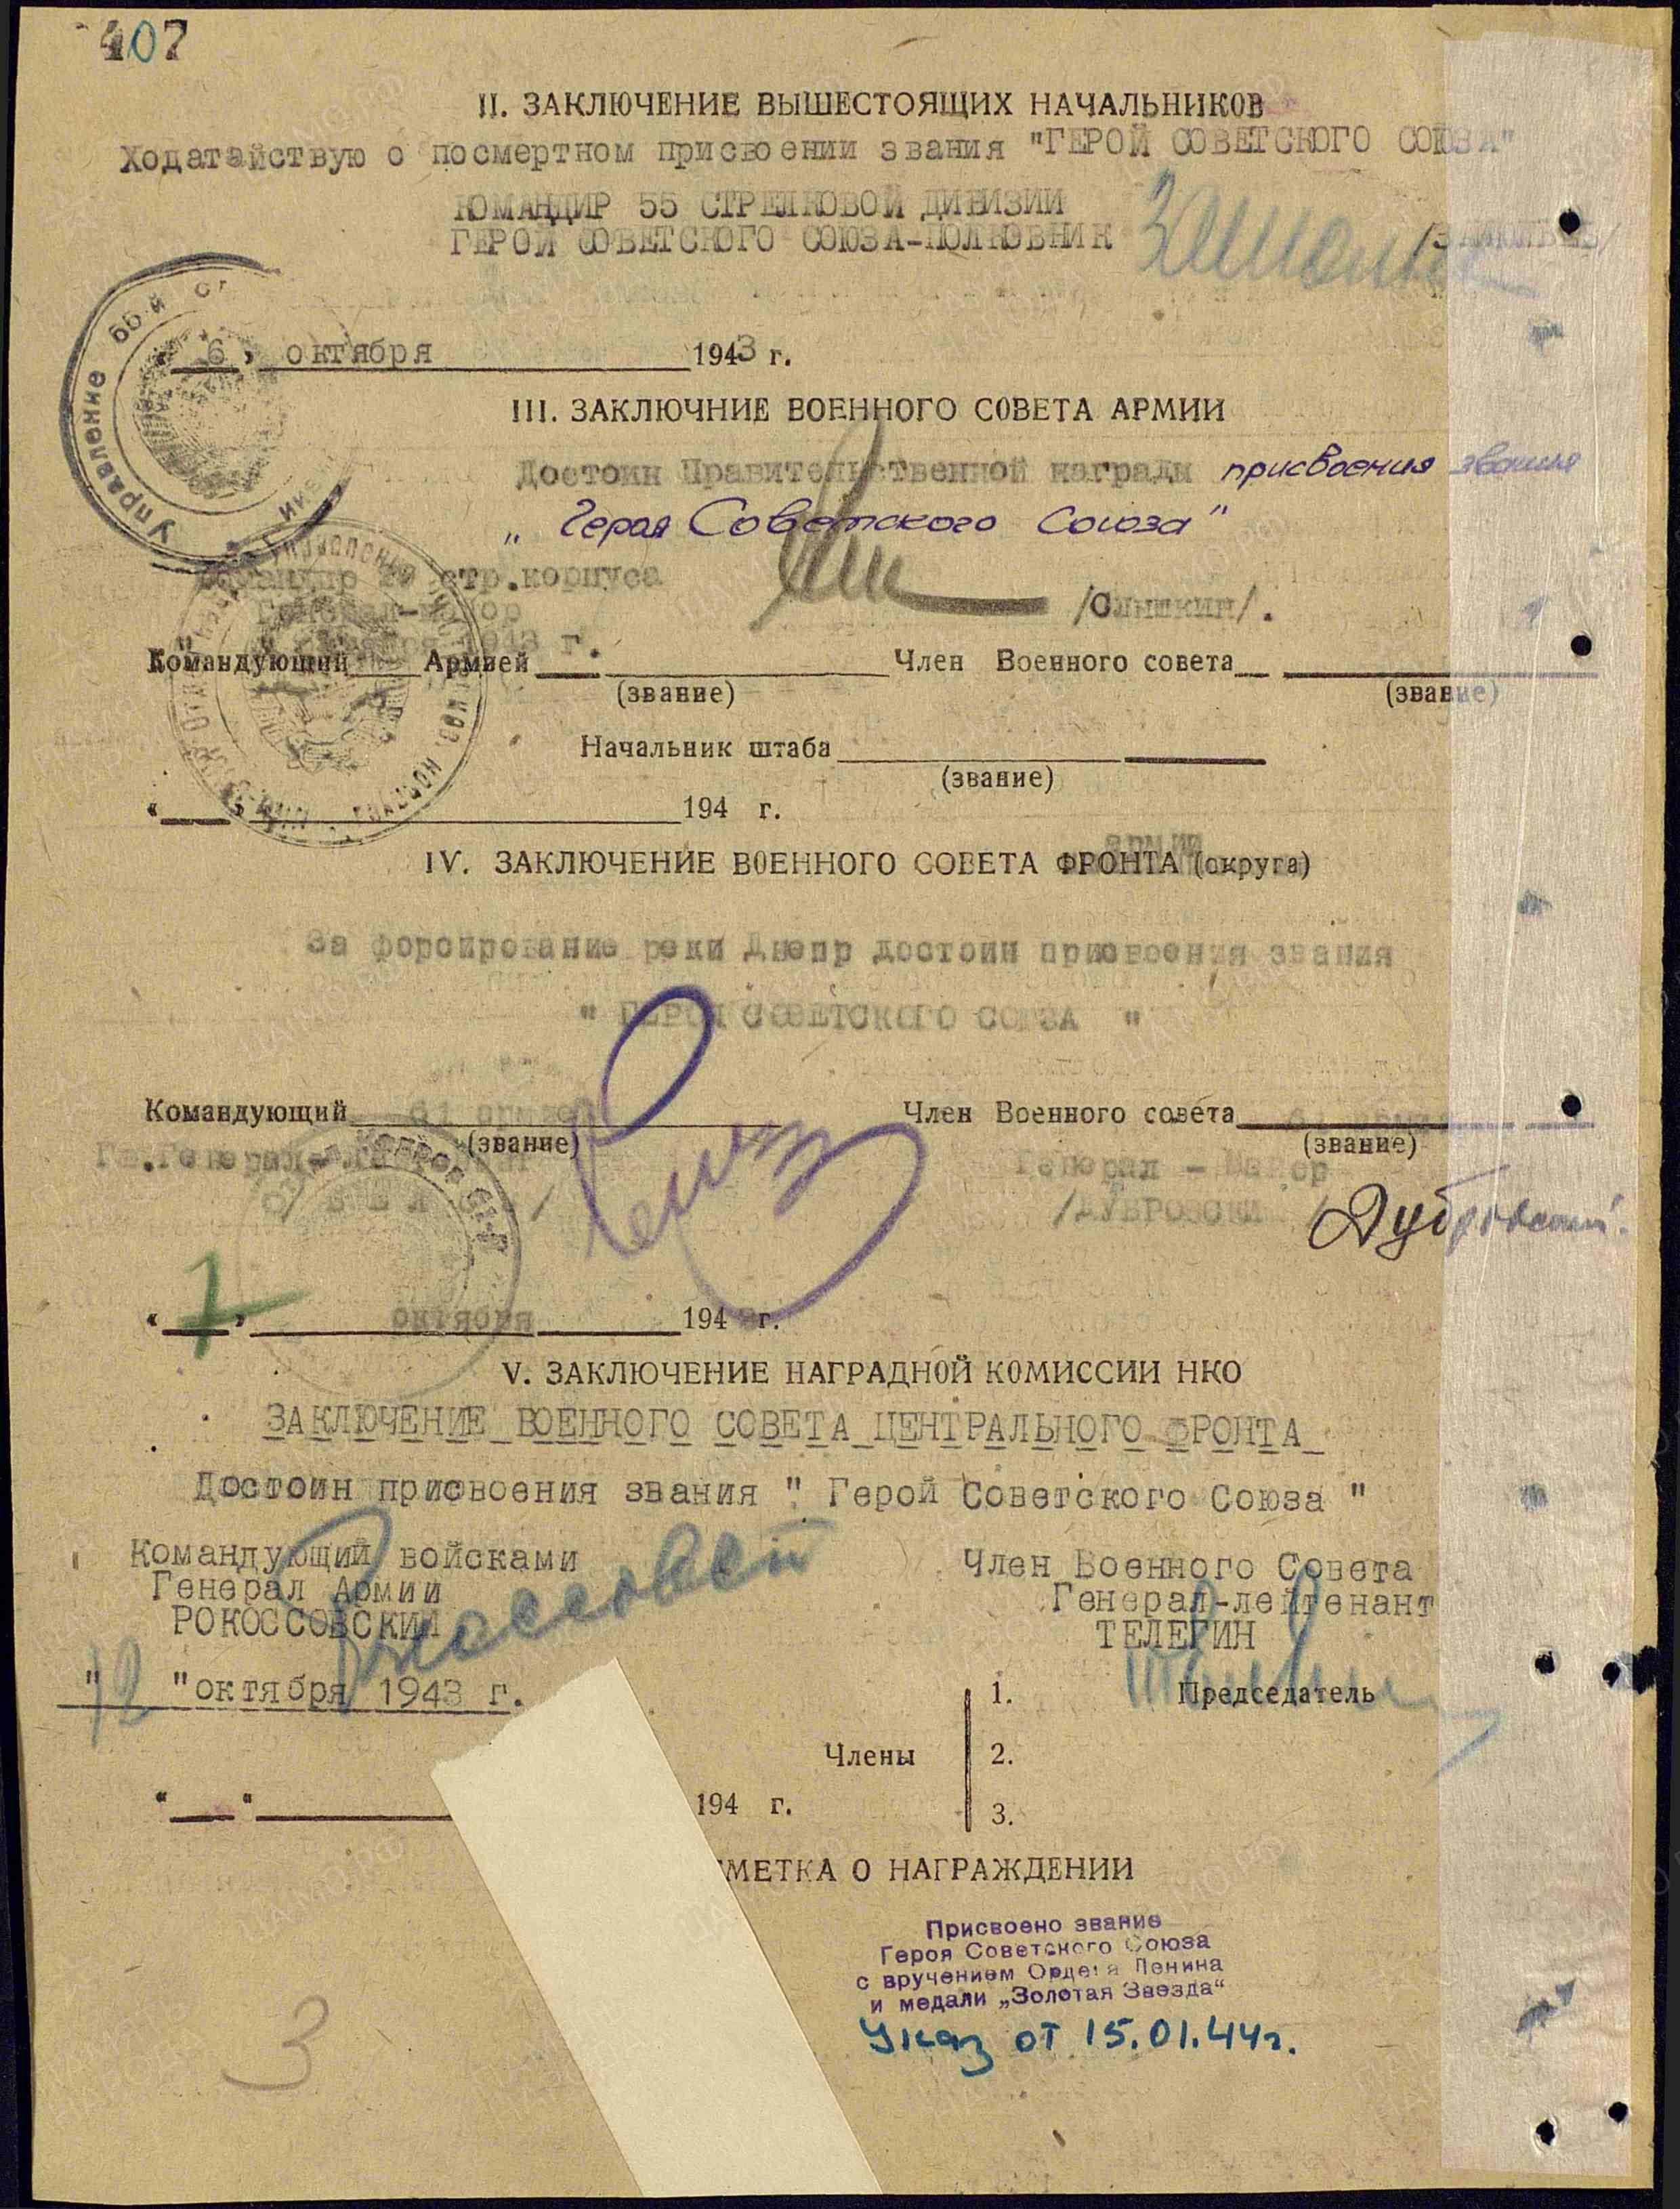 407
II. ЗАКЛЮЧЕНИЕ ВЫШЕСТОЯЩИХ НАЧАЛЬНИКОВ
Ходатайствую о посмертном присвоении звания "ГЕРОЙ СОВЕТСКОГО СОЮЗА"
КОМАНДИР 55 СТРЕЛКОВОЙ ДИВИЗИИ
ГЕРОЙ СОВЕТСКОГО СОЮЗА-ПОЛКОВНИК
Управление 55-й
" 6 " октября 1943 г.
III. ЗАКЛЮЧНИЕ ВОЕННОГО СОВЕТА АРМИИ
Достоин Правительственной награды присвоения звания
„ Героя Советского Союза "
Командир стр.корпуса
Генерал-майор /Слышкин/.
1943 г.
Командующий Армией Член Военного совета
(звание) (звание)
Начальник штаба
(звание)
" " 194 г.
армии
IV. ЗАКЛЮЧЕНИЕ ВОЕННОГО СОВЕТА ФРОНТА (округа)
За форсирование реки Днепр достоин присвоения звания
" ГЕРОЯ СОВЕТСКОГО СОЮЗА "
Командующий 61 армией Член Военного совета 61 армии
(звание) (звание)
Гв.Генерал-лейтенант Генерал - Майор
/БЕЛОВ/ /ДУБРОВСКИЙ/ Дубровский
" 7 " октября 194 г.
V. ЗАКЛЮЧЕНИЕ НАГРАДНОЙ КОМИССИИ НКО
ЗАКЛЮЧЕНИЕ ВОЕННОГО СОВЕТА ЦЕНТРАЛЬНОГО ФРОНТА
Достоин присвоения звания " Герой Советского Союза "
Командующий войсками Член Военного Совета
Генерал Армии Генерал-лейтенант
РОКОССОВСКИЙ ТЕЛЕГИН
" 12 "октября 1943 г.
1. Председатель
Члены 2.
" " 194 г.
3.
МЕТКА О НАГРАЖДЕНИИ
Присвоено звание
Героя Советского Союза
с вручением Ордена Ленина
и медали „Золотая Звезда"
Указ от 15.01.44г.
3